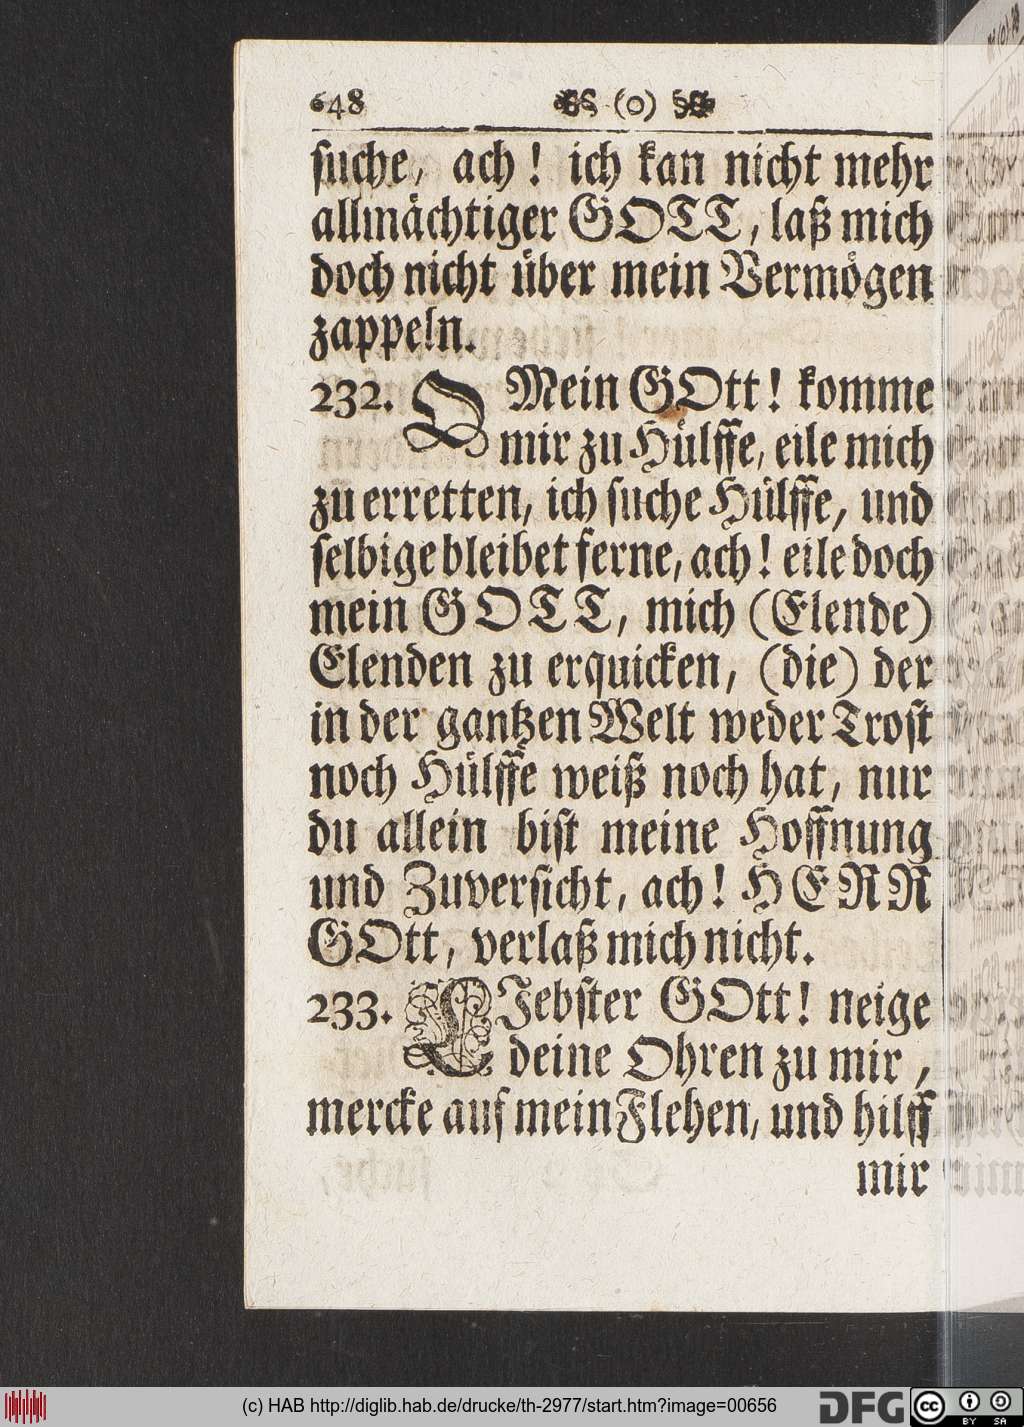 648 (0)
suche, ach! ich kan nicht mehr
allmächtiger GOTT, laß mich
doch nicht über mein Vermögen
zappeln.
232. O Mein GOtt! komme
mir zu Hülffe, eile mich
zu erretten, ich suche Hülffe, und
selbige bleibet ferne, ach! eile doch
mein GOTT, mich (Elende)
Elenden zu erquicken, (die) der
in der gantzen Welt weder Trost
noch Hülffe weiß noch hat, nur
du allein bist meine Hoffnung
und Zuversicht, ach! HERR
GOtt, verlaß mich nicht.
233. LIebster GOtt! neige
deine Ohren zu mir,
mercke auf mein Flehen, und hilff
mir
(c) HAB http://diglib.hab.de/drucke/th-2977/start.htm?image=00656
DFG
cc BY SA